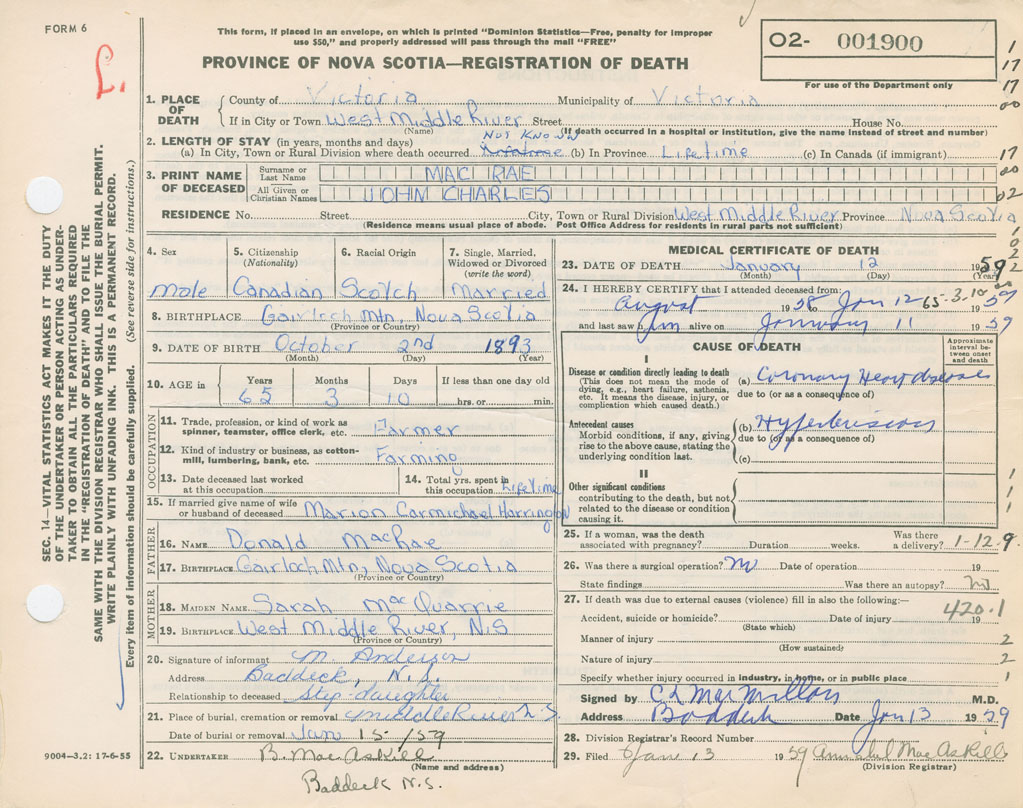 FORM 6
This form, if placed in an envelope, on which is printed "Dominion Statistics—Free, penalty for improper
use $50," and properly addressed will pass through the mail "FREE"
PROVINCE OF NOVA SCOTIA—REGISTRATION OF DEATH
O2- 001900
For use of the Department only
L.
1
17
17
00
17
00
02
1. PLACE OF DEATH
County of Victoria Municipality of Victoria
If in City or Town West Middle River Street House No.
(Name) (If death occurred in a hospital or institution, give the name instead of street and number)
2. LENGTH OF STAY (in years, months and days) Not Known
(a) In City, Town or Rural Division where death occurred Lifetime (b) In Province Lifetime (c) In Canada (if immigrant)
3. PRINT NAME OF DECEASED
Surname or Last Name MAC RAE
All Given or Christian Names JOHN CHARLES
RESIDENCE No. Street City, Town or Rural Division West Middle River Province Nova Scotia
(Residence means usual place of abode. Post Office Address for residents in rural parts not sufficient)
4. Sex
male
5. Citizenship
(Nationality)
Canadian
6. Racial Origin
Scotch
7. Single, Married,
Widowed or Divorced
(write the word)
Married
8. BIRTHPLACE Gairloch Mtn, Nova Scotia
(Province or Country)
9. DATE OF BIRTH October 2nd 1893
(Month) (Day) (Year)
10. AGE in
Years Months Days If less than one day old
65 3 10 hrs. or min.
OCCUPATION
11. Trade, profession, or kind of work as
spinner, teamster, office clerk, etc. Farmer
12. Kind of industry or business, as cotton-
mill, lumbering, bank, etc. Farming
13. Date deceased last worked
at this occupation
14. Total yrs. spent in
this occupation Lifetime
15. If married give name of wife
or husband of deceased Marion Carmichael Harrington
FATHER
16. NAME Donald MacRae
17. BIRTHPLACE Gairloch Mtn, Nova Scotia
(Province or Country)
MOTHER
18. MAIDEN NAME Sarah MacQuarrie
19. BIRTHPLACE West Middle River, N.S
(Province or Country)
20. Signature of informant M. Anderson
Address Baddeck, N.S.
Relationship to deceased Step-daughter
21. Place of burial, cremation or removal Middle River N.S.
Date of burial or removal Jan 15/59
22. UNDERTAKER B. MacAskill
(Name and address)
Baddeck N.S.
MEDICAL CERTIFICATE OF DEATH
23. DATE OF DEATH January 12 1959
(Month) (Day)
24. I HEREBY CERTIFY that I attended deceased from:
August 1958 to Jan 12 65-3-10 1959
and last saw him alive on January 11 1959
CAUSE OF DEATH
Approximate
interval be-
tween onset
and death
I
Disease or condition directly leading to death
(This does not mean the mode of
dying, e.g., heart failure, asthenia,
etc. It means the disease, injury, or
complication which caused death.)
(a) Coronary Heart disease
due to (or as a consequence of)
Antecedent causes
Morbid conditions, if any, giving
rise to the above cause, stating the
underlying condition last.
(b) Hypertension
due to (or as a consequence of)
(c)
II
Other significant conditions
contributing to the death, but not
related to the disease or condition
causing it.
1
1
1
25. If a woman, was the death
associated with pregnancy? Duration weeks. Was there
a delivery? 1-12.9
26. Was there a surgical operation? No Date of operation 19
State findings Was there an autopsy? No
27. If death was due to external causes (violence) fill in also the following:—
420.1
Accident, suicide or homicide? Date of injury 19
(State which)
Manner of injury 2
(How sustained)
Nature of injury 2
Specify whether injury occurred in industry, in home, or in public place 1
Signed by C L MacMillan M.D.
Address Baddeck Date Jan 13 1959
28. Division Registrar's Record Number
29. Filed Jan 13 1959 Annabel MacAskill
(Division Registrar)
SEC. 14—VITAL STATISTICS ACT MAKES IT THE DUTY
OF THE UNDERTAKER OR PERSON ACTING AS UNDER-
TAKER TO OBTAIN ALL THE PARTICULARS REQUIRED
IN THE "REGISTRATION OF DEATH" AND TO FILE THE
SAME WITH THE DIVISION REGISTRAR WHO SHALL ISSUE THE BURIAL PERMIT.
WRITE PLAINLY WITH UNFADING INK. THIS IS A PERMANENT RECORD.
Every item of information should be carefully supplied. (See reverse side for instructions.)
9004—3.2: 17-6-55